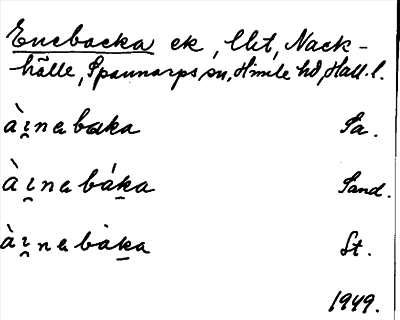 Enebacka ek, llet, Nack-
hälle, Spannarps sn, Himle hd, Hall. l.
à i̯ n a baka Sa.
à i̯ n a bák̠a Sand.
à i̯ n a bàk̠a St.
1949.